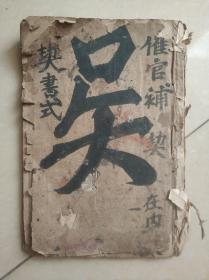 催官補契在内
吴
契書式